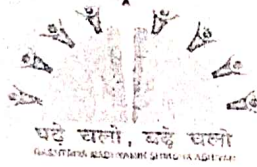 पढ़े चलो, बढ़े चलो
RASHTRIYA MADHYAMIK SHIKSHA ABHIYAN